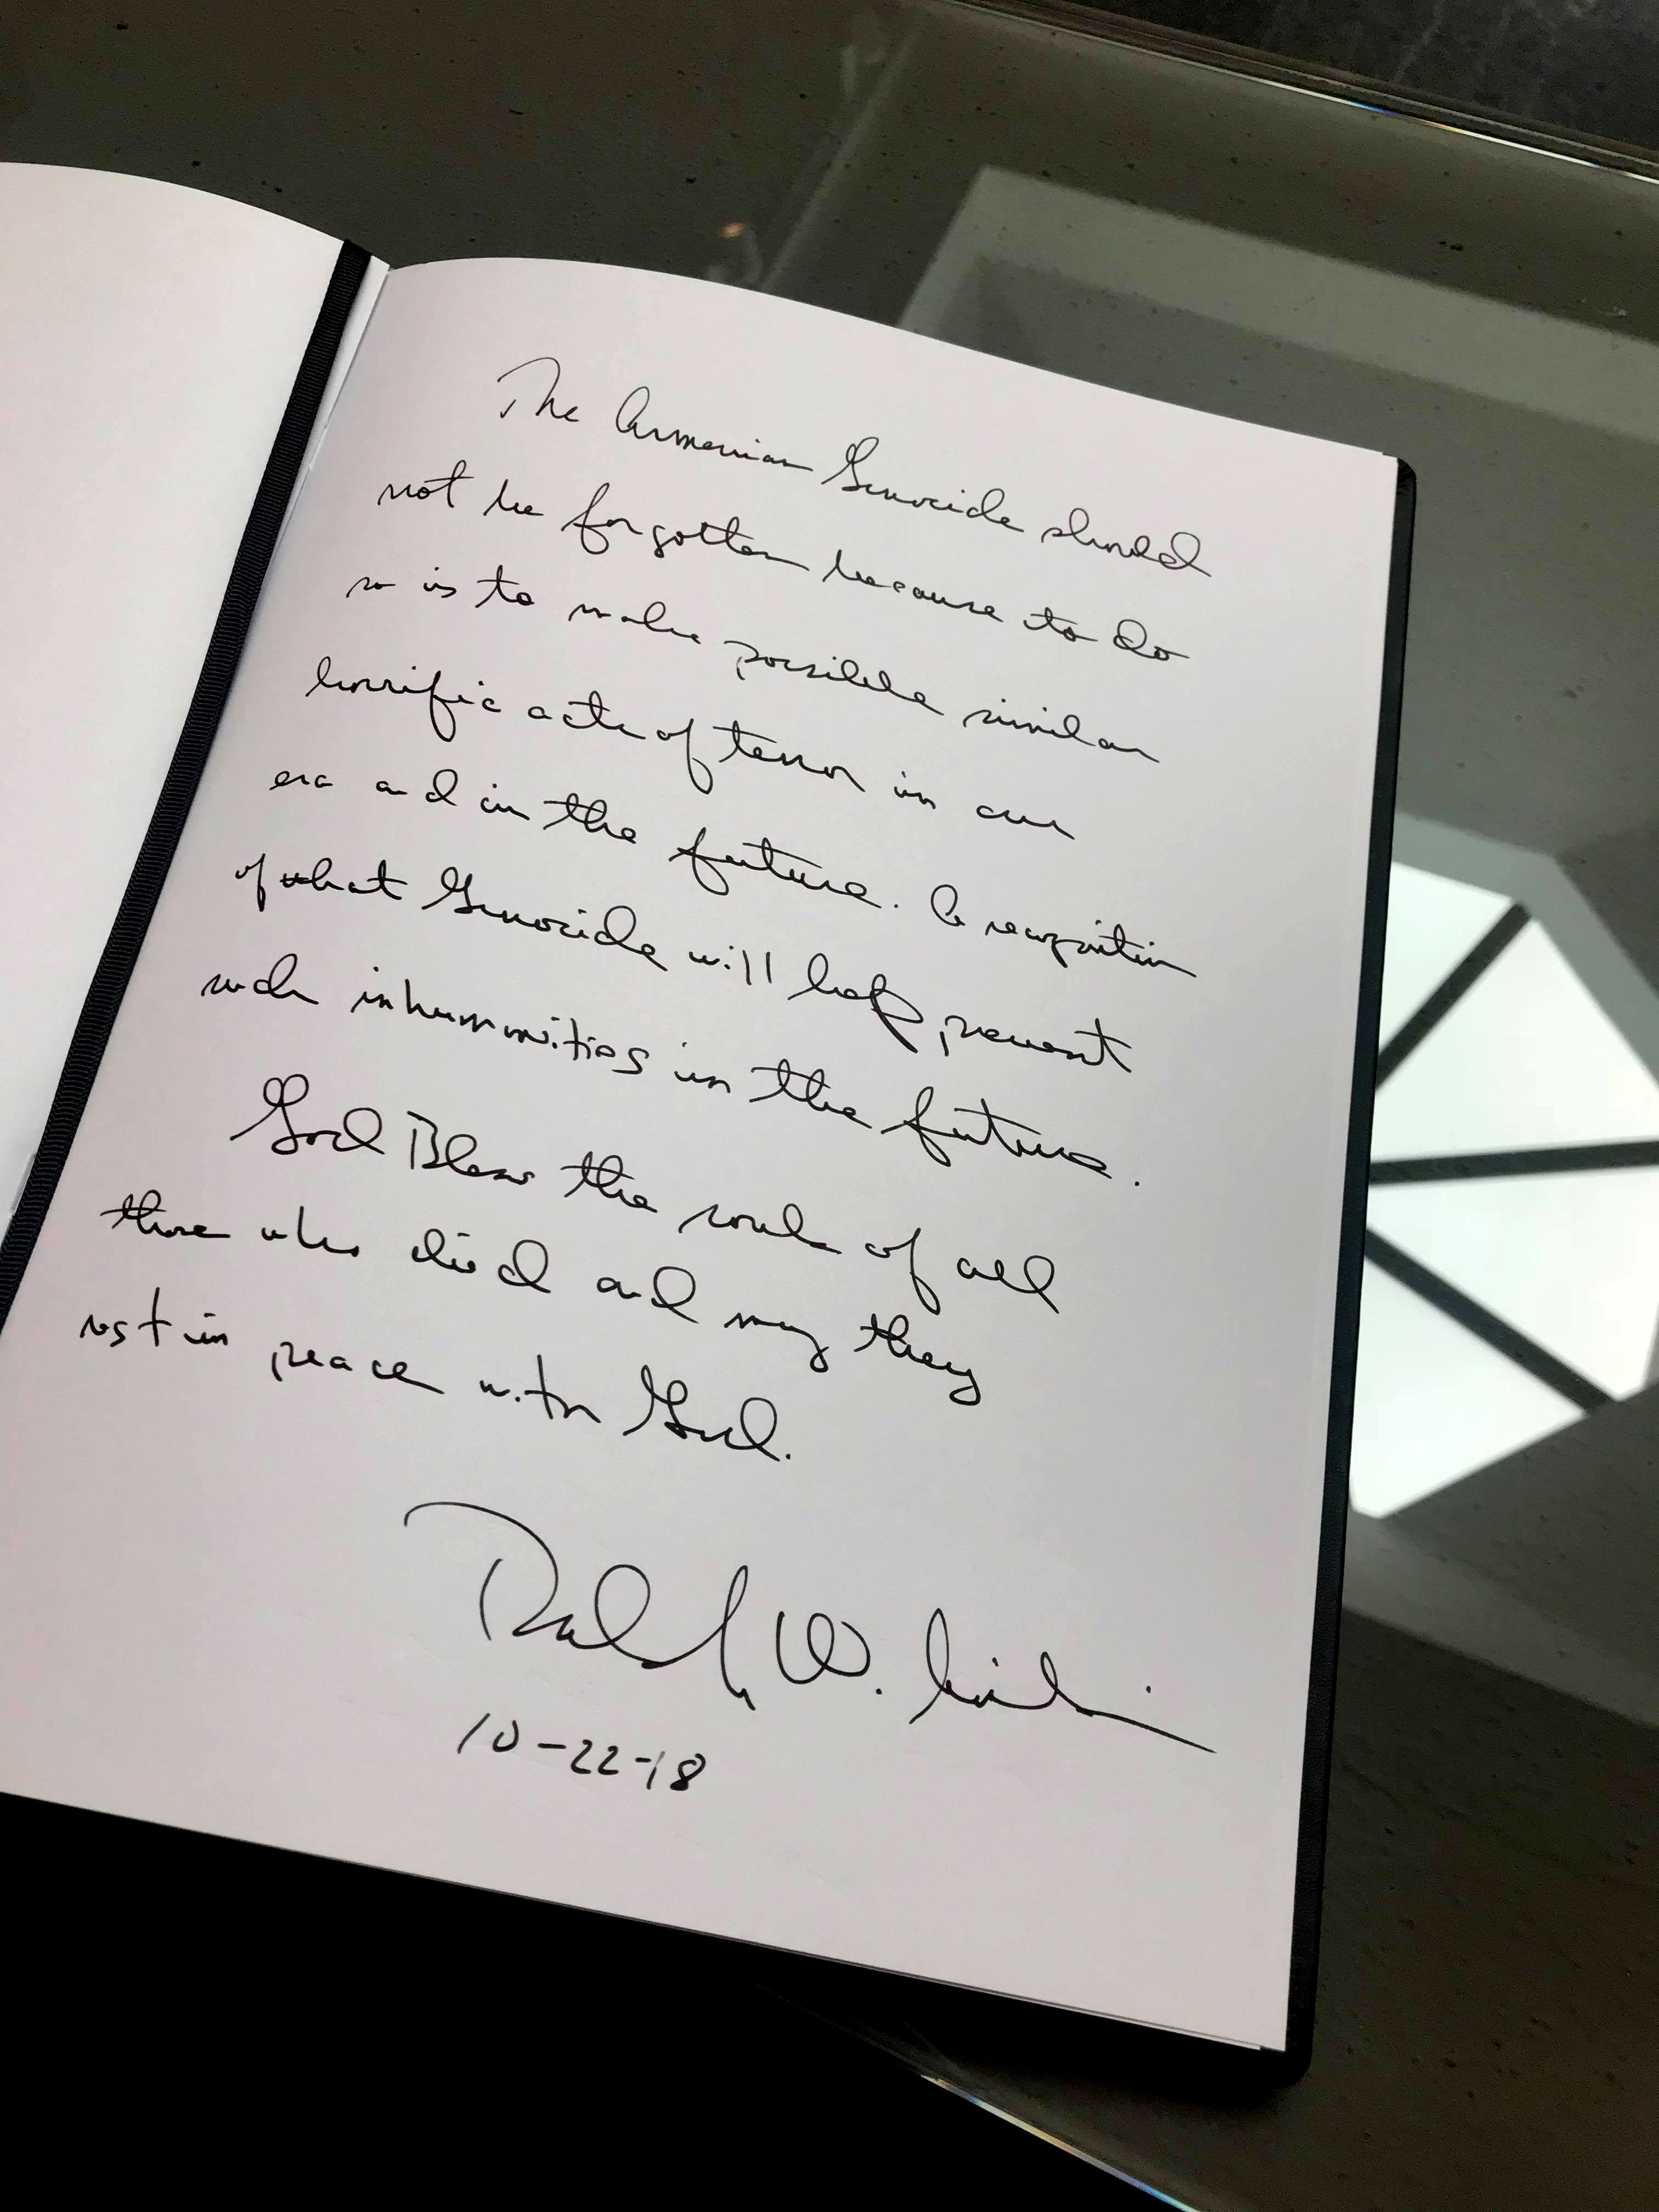 The Armenian Genocide should
not be forgotten because to do
so is to make possible similar
horrific acts of terror in our
era and in the future. A recognition
of what Genocide will help prevent
such inhumanities in the future.
God Bless the souls of all
those who died and may they
rest in peace with God.
W.
10-22-18